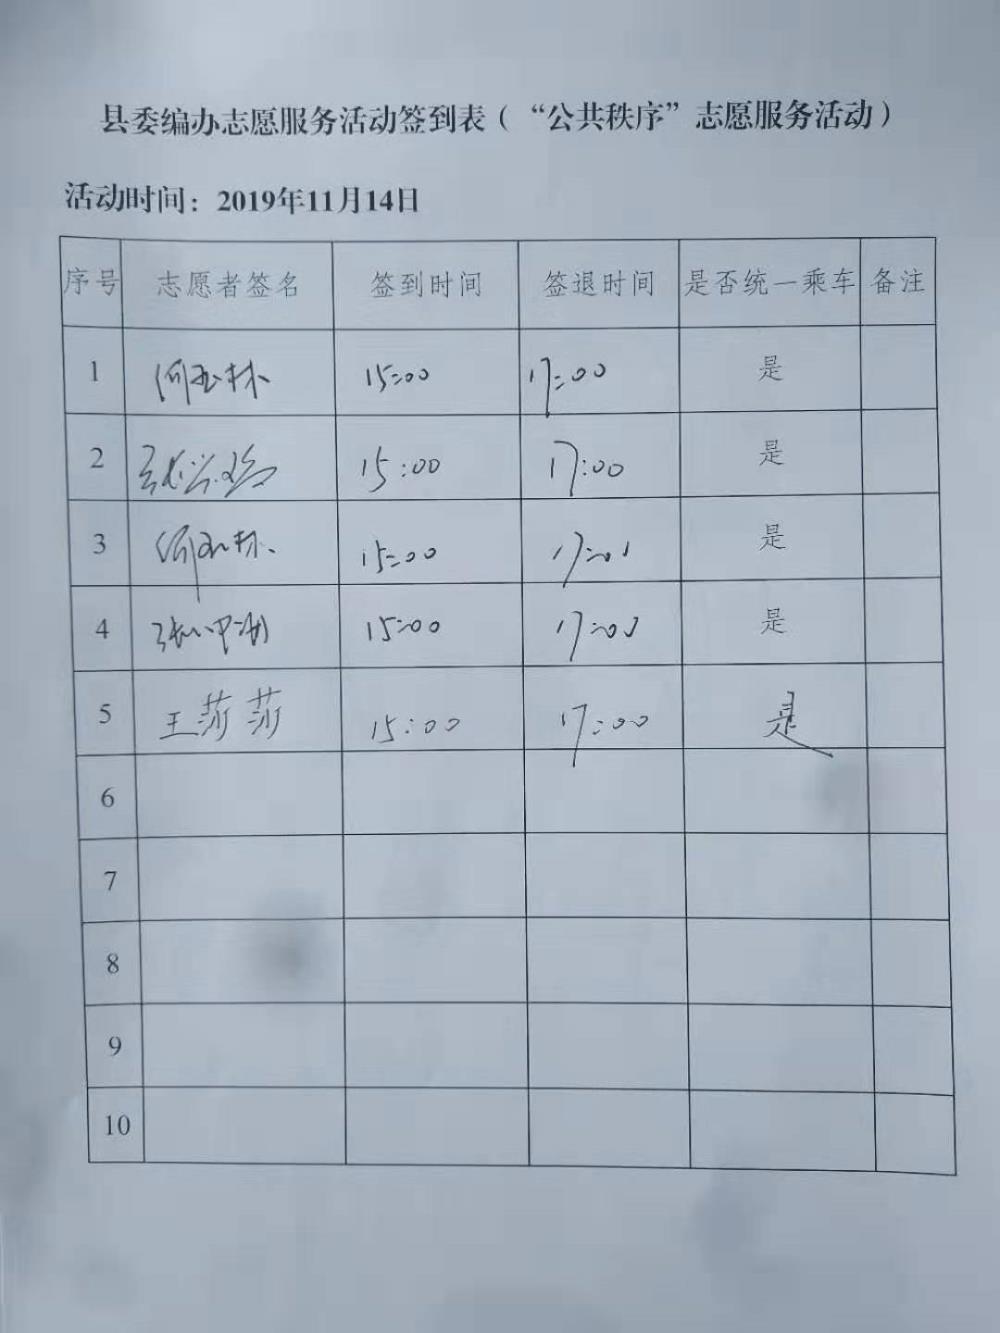 县委编办志愿服务活动签到表（“公共秩序”志愿服务活动）
活动时间：2019年11月14日
序号 志愿者签名 签到时间 签退时间 是否统一乘车 备注
1 15:00 17:00 是
2 15:00 17:00 是
3 15:00 17:00 是
4 15:00 17:00 是
5 王莎莎 15:00 17:00 是
6
7
8
9
10